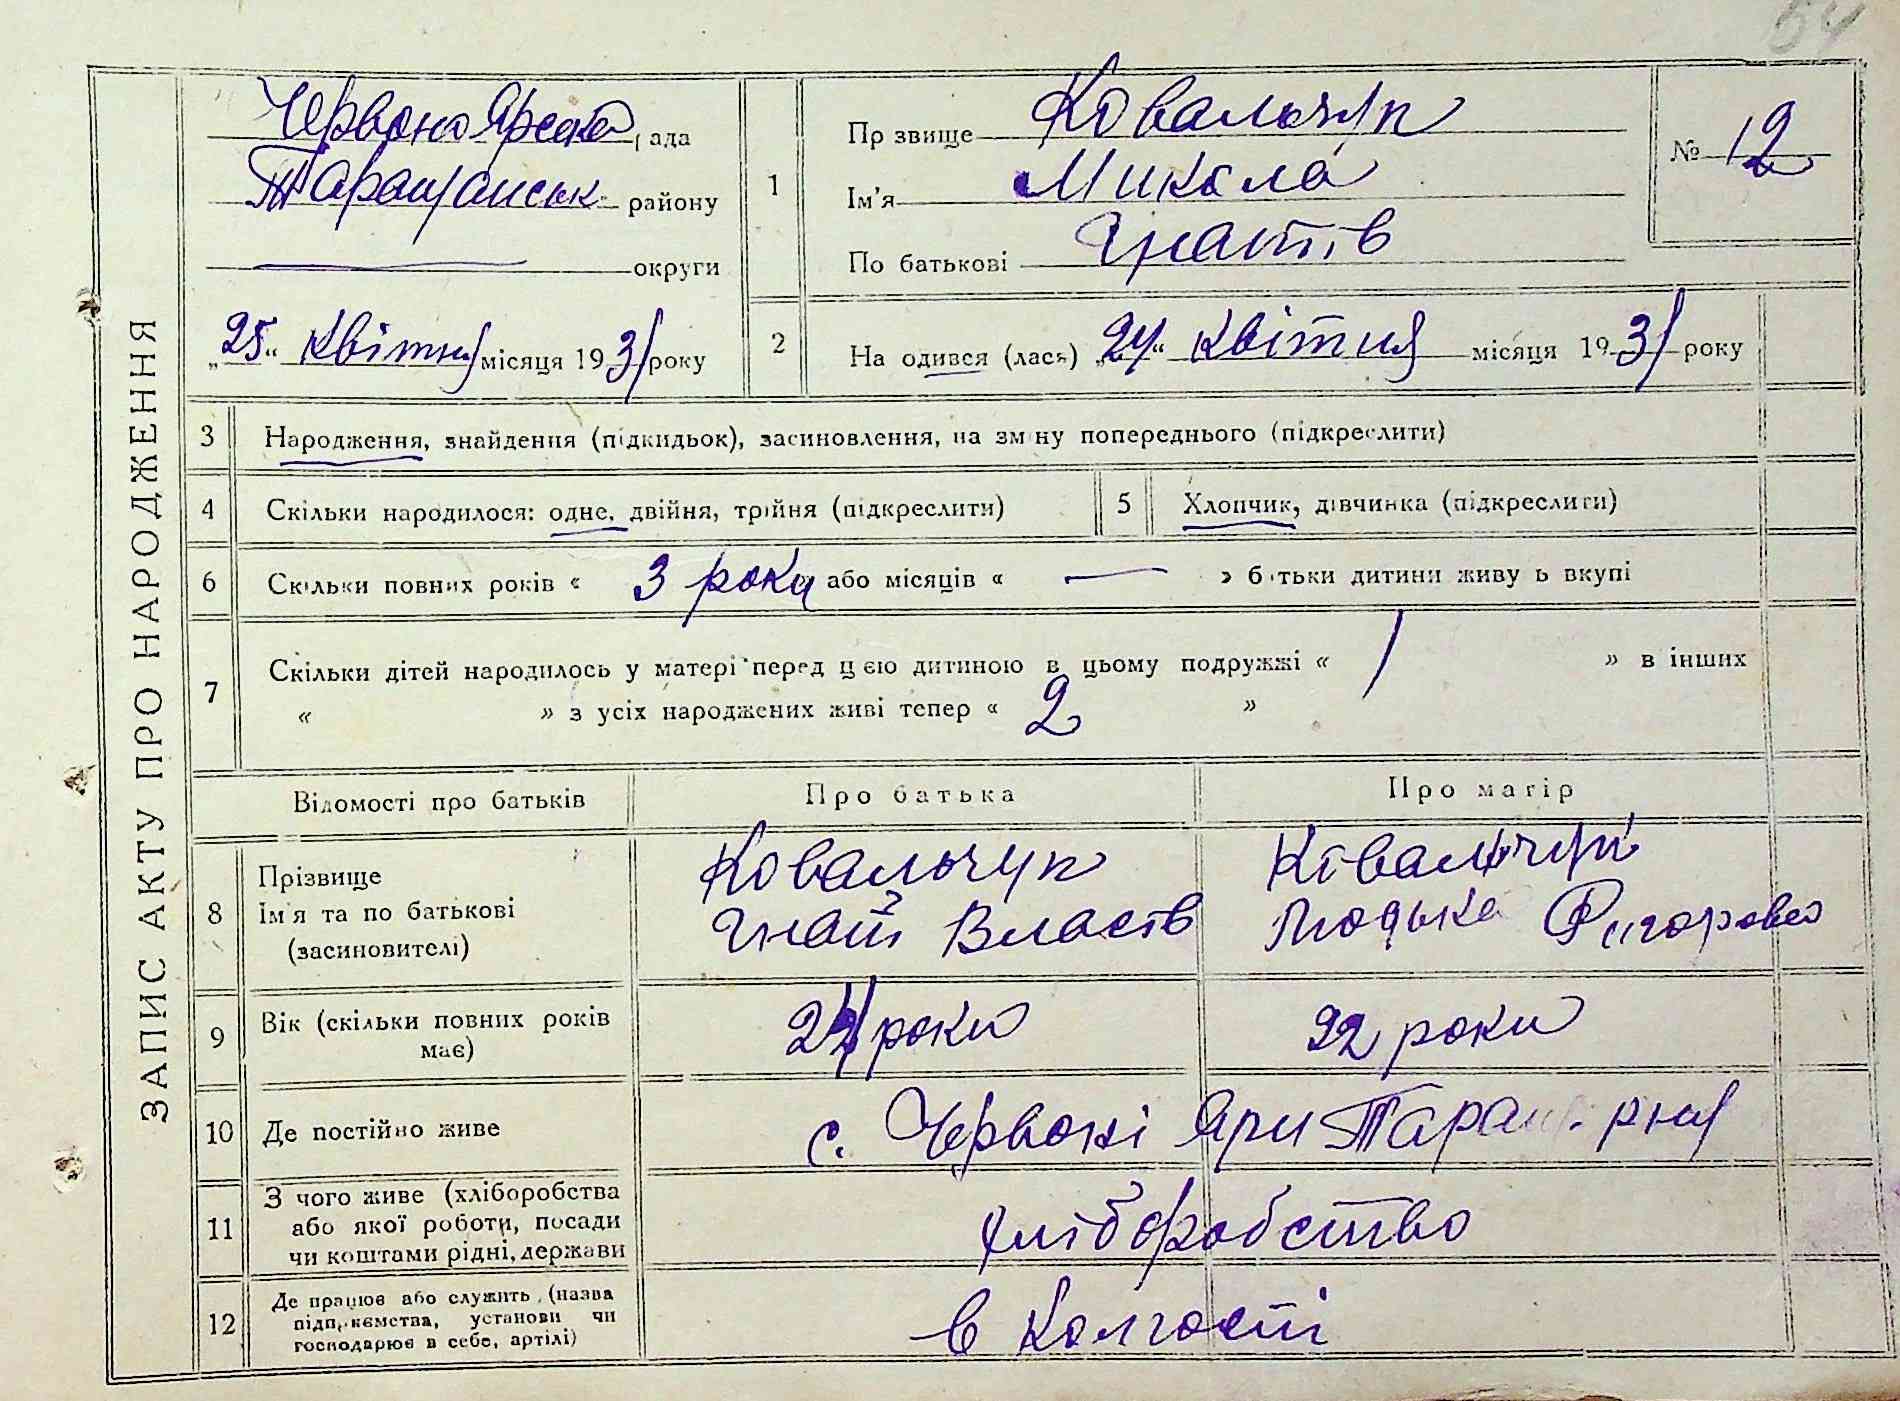 54
ЗАПИС АКТУ ПРО НАРОДЖЕННЯ
Червоно Ярська рада
Таращанськ. району
округи
„25“ Квітня місяця 1931 року
1
Прізвище Ковальчук
Ім'я Микола
По батькові Гнатів
№ 12
2
Народився (лась) „24“ Квітня місяця 1931 року
3 Народження, знайдення (підкидьок), засиновлення, на зміну попереднього (підкреслити)
4 Скільки народилося: одне, двійня, трійня (підкреслити)
5 Хлопчик, дівчинка (підкреслити)
6 Скільки повних років « 3 роки або місяців « — » батьки дитини живуть вкупі
7 Скільки дітей народилось у матері перед цією дитиною в цьому подружжі « 1 » в інших
« » з усіх народжених живі тепер « 2 »
Відомості про батьків Про батька Про матір
8 Прізвище Ім'я та по батькові (засиновителі)
Ковальчук
Гнат Власів
Ковальчук
Фигоровна
9 Вік (скільки повних років має) 24 роки 22 роки
10 Де постійно живе с. Червоні Яри Таращ. рну
11 З чого живе (хліборобства
або якої роботи, посади
чи коштами рідні, держави
хліборобство
12 Де працює або служить, (назва
підприємства, установи чи
господарює в себе, артілі)
в Колгоспі